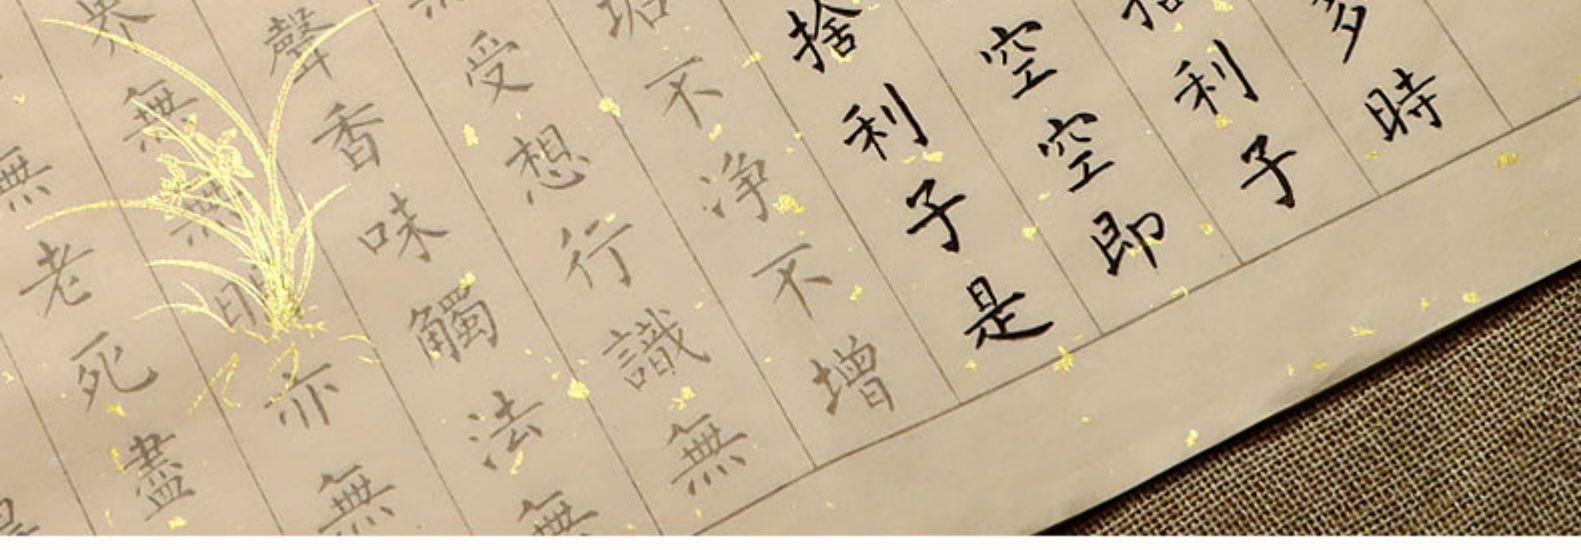 多時
捨利子
空空即
捨利子是
垢不淨不增
無受想行識無
聲香味觸法無
界無無明亦無
無老死盡